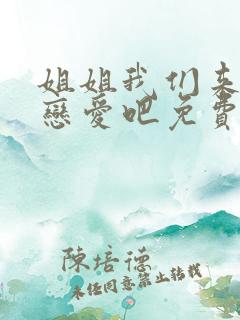 姐姐我们来
戀愛吧免費
陳培德
未任同意禁止转载